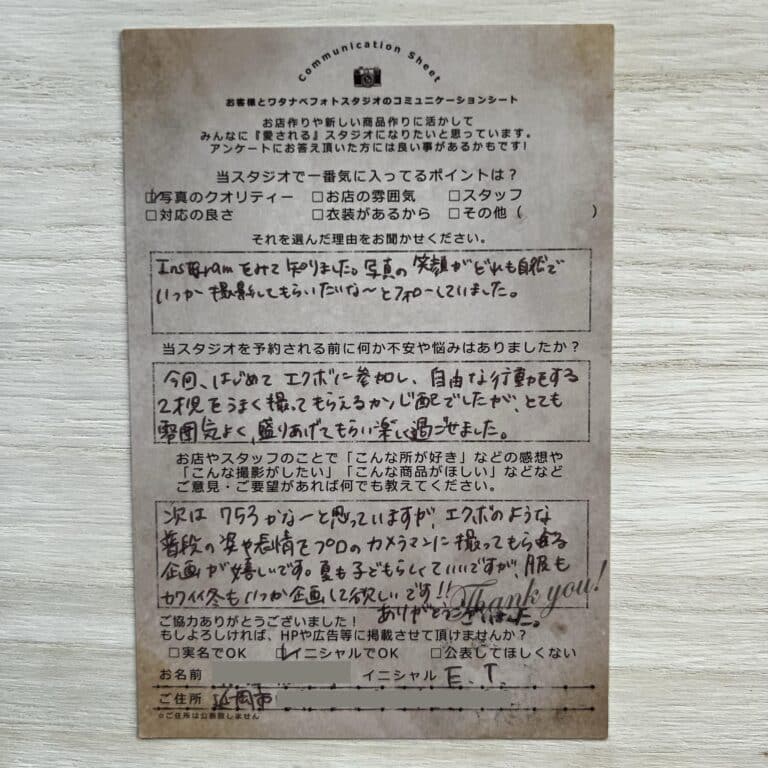 Communication Sheet
お客様とワタナベフォトスタジオのコミュニケーションシート
お店作りや新しい商品作りに活かして
みんなに『愛される』スタジオになりたいと思っています。
アンケートにお答え頂いた方には良い事があるかもです!
当スタジオで一番気に入ってるポイントは?
☑写真のクオリティー □お店の雰囲気 □スタッフ
□対応の良さ □衣装があるから □その他( )
それを選んだ理由をお聞かせください。
Instgramをみて知りました。写真の笑顔がどれも自然で
いつか撮影してもらいたいな〜とフォローしていました。
当スタジオを予約される前に何か不安や悩みはありましたか?
今回、はじめてエクボに参加し、自由な行動をする
2才児をうまく撮ってもらえるかシンパイでしたが、とても
雰囲気よく、盛りあげてもらい楽しく過ごせました。
お店やスタッフのことで「こんな所が好き」などの感想や
「こんな撮影がしたい」「こんな商品がほしい」などなど
ご意見・ご要望があれば何でも教えてください。
次は753かなーと思っていますが、エクボのような
普段の姿や表情をプロのカメラマンに撮ってもらえる
企画が嬉しいです。夏も子どもらしくていいですが、服も
カワイイ冬もいつか企画して欲しいです!!
ありがとうございました。
Thank you!
ご協力ありがとうございました!
もしよろしければ、HPや広告等に掲載させて頂けませんか?
□実名でOK ☑イニシャルでOK □公表してほしくない
お名前 イニシャル E.T.
ご住所 延岡市
☆ご住所は公表致しません